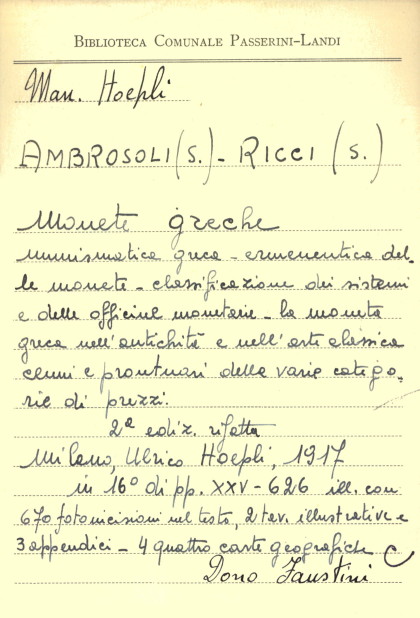 BIBLIOTECA COMUNALE PASSERINI-LANDI
Man. Hoepli
AMBROSOLI (S.) - RICCI (S.)
Monete greche
numismatica greca - ermeneutica del-
le monete - classificazione dei sistemi
e delle officine monetarie - la moneta
greca nell'antichità e nell'arte classica
cenni e prontuari delle varie catego-
rie di prezzi.
2ª ediz. rifatta
Milano, Ulrico Hoepli, 1917
in 16° di pp. XXV - 626 ill. con
670 fotoincisioni nel testo, 2 tav. illustrative e
3 appendici - 4 quattro carte geografiche
Dono Faustini